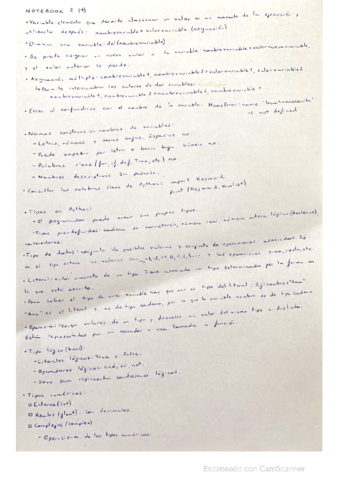 NOTEBOOK 2 (1)
• Variable: elemento que permite almacenar un valor en un momento de la ejecución y
utilizarlo después: nombrevariable = valorvariable (asignación)
• Eliminar una variable: del(nombrevariable)
• Se puede asignar un nuevo valor a la variable: nombrevariable = valornuevavariable,
y el valor anterior se pierde.
• Asignación múltiple: nombrevariable1, nombrevariable2 = valorvariable1, valorvariable2
los valores de dos variables:
nombrevariable1, nombrevariable2 = nombrevariable2, nombrevariable1
• Error al confundirse con el nombre de la variable: NameError: name
is not defined
• Normas construcción nombres de variables:
- Letras, números y barras bajas. Espacios no.
- Puede empezar por letra o barra baja. Número no.
- Palabras clave (for, if, def, True, etc) no.
- Nombres descriptivos sin pasarse.
• Consultar las palabras clave de Python: import keyword
print (keyword.kwlist)
• Tipos en Python:
- El programador puede crear sus propios tipos.
- Tipos pre-definidos: cadena de caracteres, número real, número entero, lógico (booleano),
contenedores.
• Tipo de datos: conjunto de posibles valores y conjunto de operaciones asociadas. Ej:
en el tipo entero los valores son ...-2, -1, 0, 1, 2, ... y las operaciones suma, resta, etc
• Literal: valor concreto de un tipo. Tiene asociado un tipo determinado por la forma en
la que está escrito.
• Para saber el tipo de una variable hay que ver el tipo del literal. Ej: nombre = "Ana"
"Ana" es el literal y es de tipo cadena, por lo que la variable nombre es de tipo cadena
• Operación: recibe valores de un tipo y devuelve un valor del mismo tipo o distinto.
Están representadas por un operador o una llamada a función.
• Tipo lógico (bool)
- Literales lógicos: True o False.
- Operadores lógicos: and, or, not.
- Sirve para representar condiciones lógicas.
• Tipos numéricos:
Enteros (int)
Reales (float). Con decimales.
Complejos (complex)
- Operaciones de los tipos numéricos:
Escaneado con CamScanner